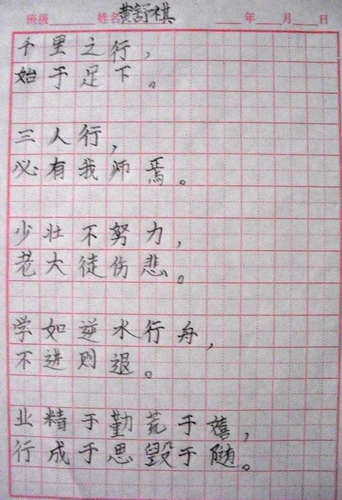 班级 姓名 黄舒祺 年 月 日
千里之行，
始于足下。
三人行，
必有我师焉。
少壮不努力，
老大徒伤悲。
学如逆水行舟，
不进则退。
业精于勤荒于嬉，
行成于思毁于随。